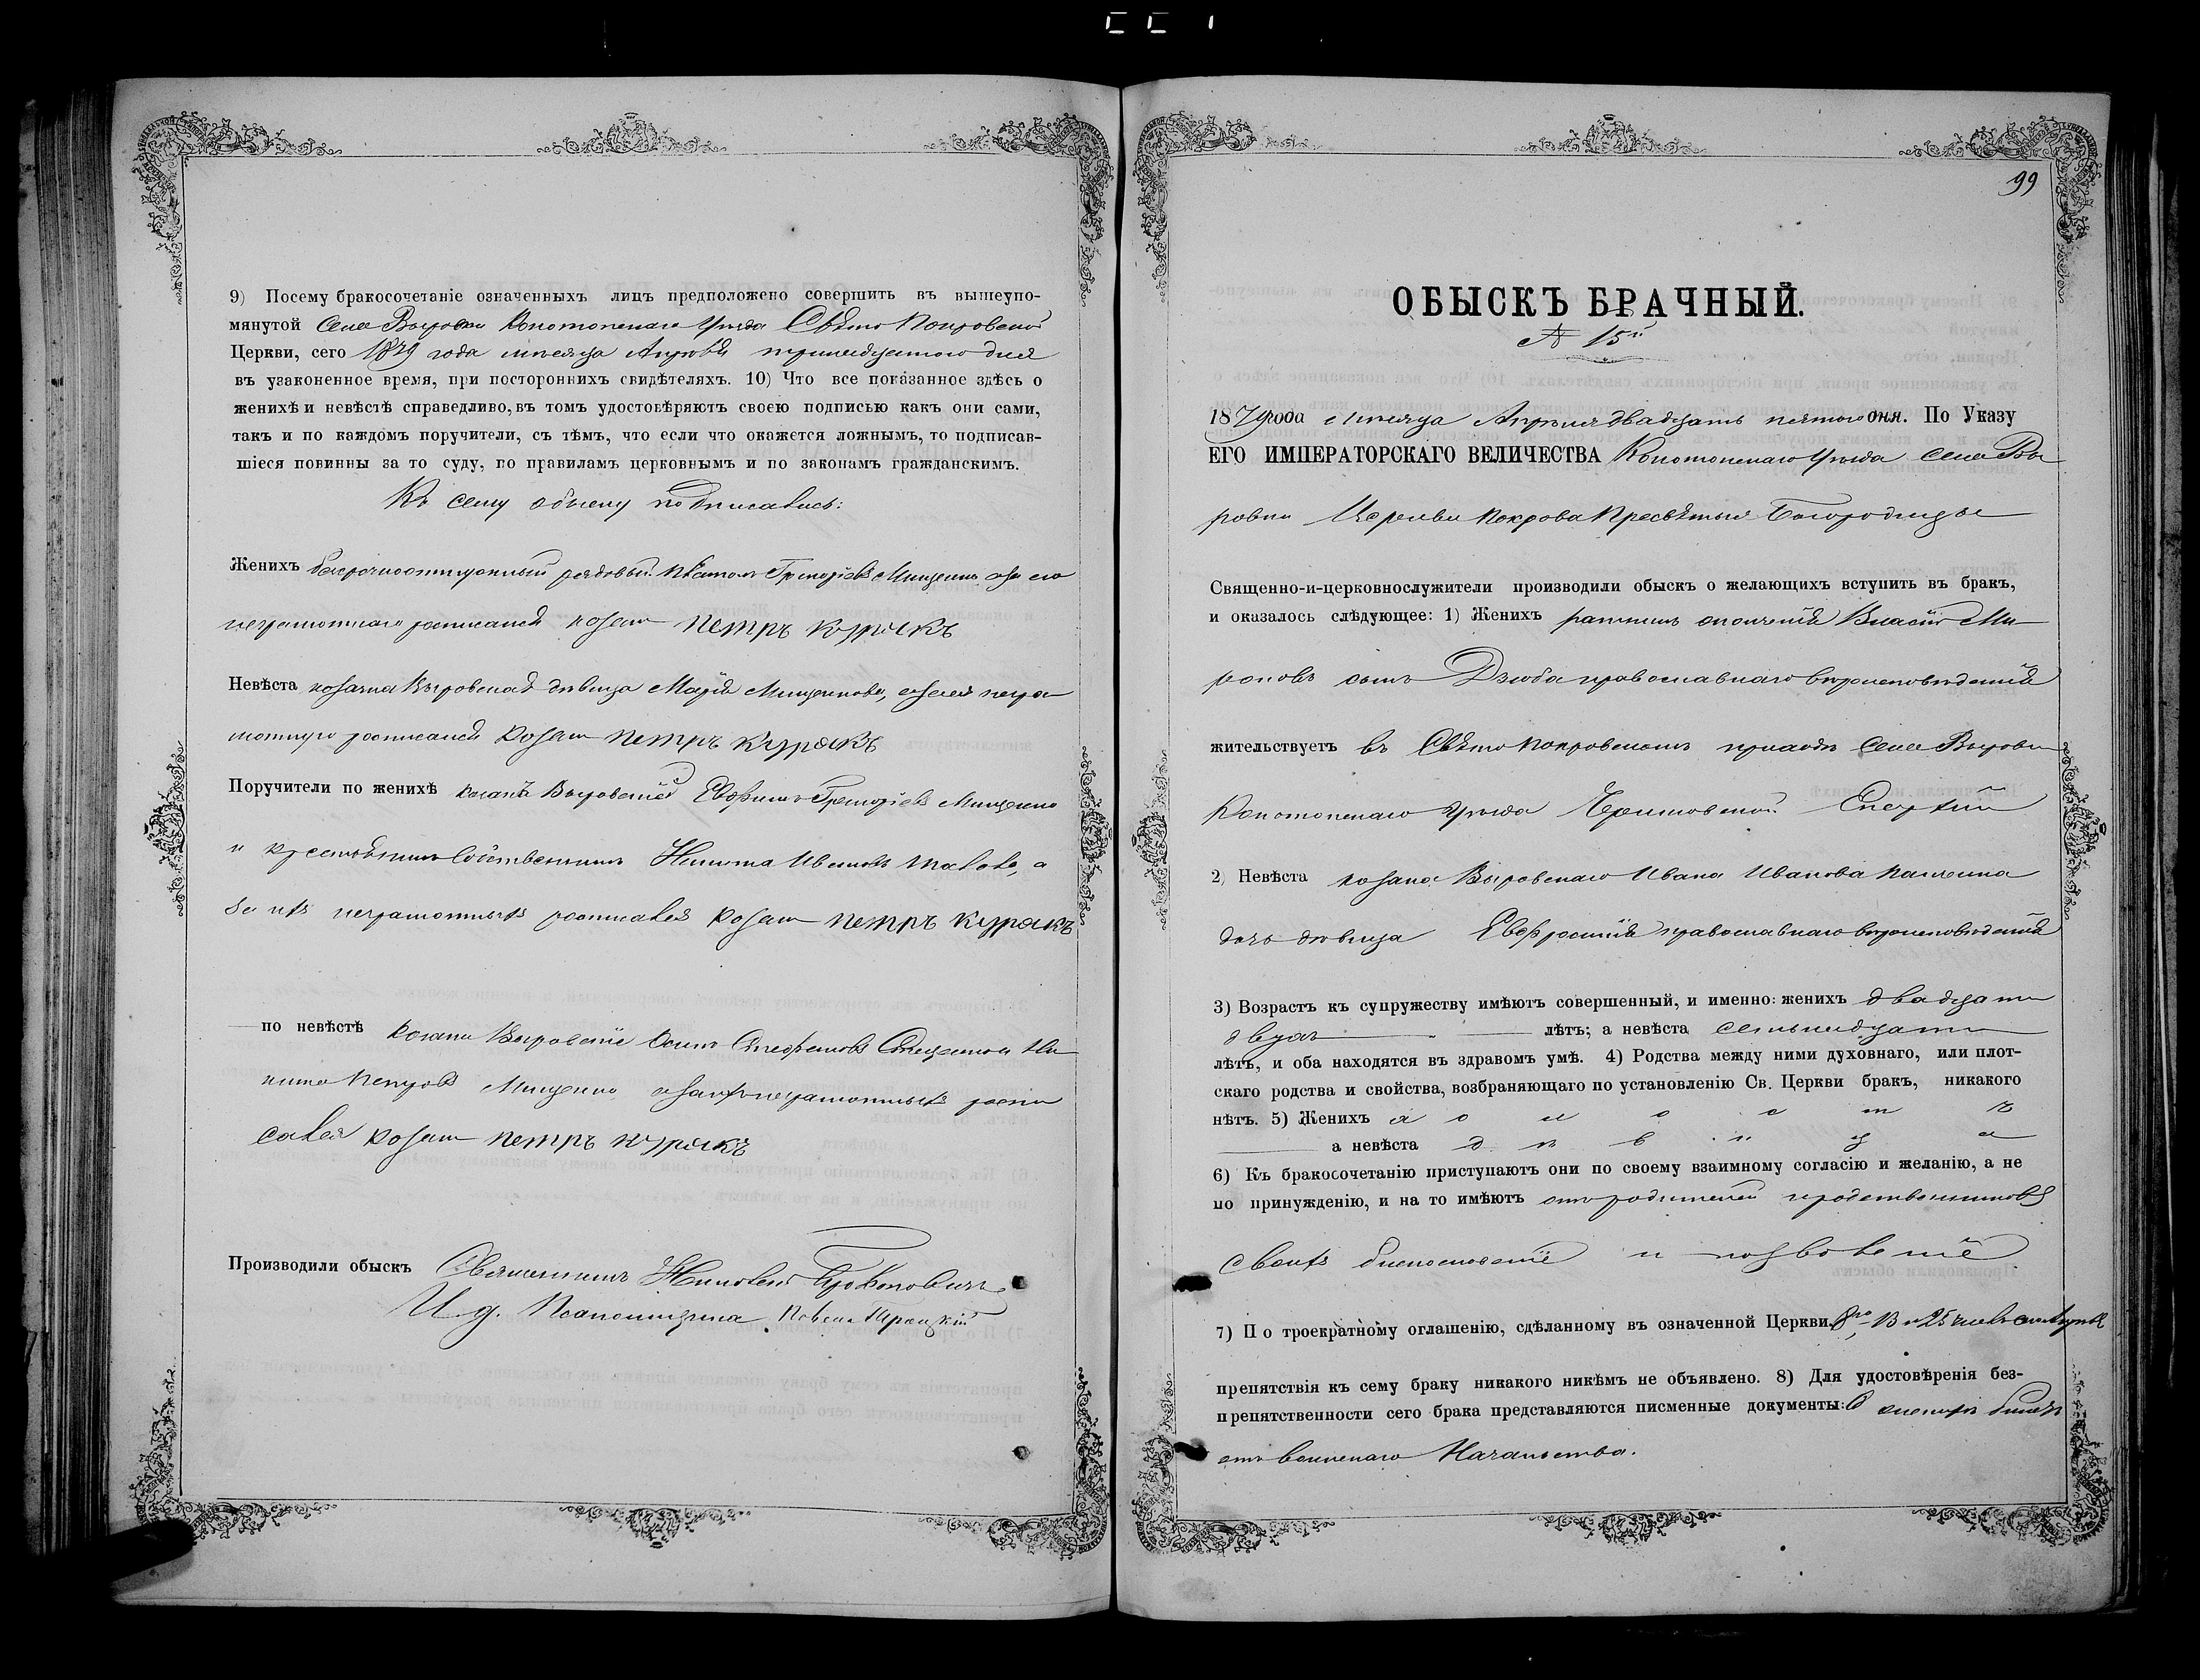 9) Посему бракосочетаніе означенныхъ лицъ предположено совершить въ вышеупо-
мянутой Села Выровки Конотопскаго Уѣзда Свѣто Покровской
Церкви, сего 1879 года мѣсяца Апрѣля тринадцатого дня
въ узаконенное время, при постороннихъ свидѣтеляхъ. 10) Что все показанное здѣсь о
женихѣ и невѣстѣ справедливо, въ томъ удостовѣряютъ своею подписью какъ они сами,
такъ и по каждомъ поручители, съ тѣмъ, что если что окажется ложнымъ, то подписав-
шіеся повинны за то суду, по правиламъ церковнымъ и по законамъ гражданскимъ.
Къ сему обыску подписались:
Женихъ безсрочноотпускный рядовый Григоріевъ Мищенко а за его
неграмотнаго росписался козакъ Петръ Курдюкъ
Невѣста козачка Выровская дѣвица Марія Мищенкова, а за ея негра
мотную росписался Козакъ Петръ Курдюкъ
Поручители по женихѣ козакъ Выровскій Евфимъ Григоріевъ Мищенко
и крестьянинъ собственникъ Никита Ивановъ а
за ихъ неграмотныхъ росписался Козакъ Петръ Курдюкъ
по невѣстѣ козаки Выровскіе Осипъ Стефановъ и Ни
кита Петровъ Мищенко а за ихъ неграмотныхъ роспи
сался Козакъ Петръ Курдюкъ
Производили обыскъ Священникъ Прокоповичъ
И. д. Псаломщика Павелъ Троицкій
99
ОБЫСКЪ БРАЧНЫЙ.
№ 15й
1879 года мѣсяца Апрѣля двадцать пятого дня. По Указу
ЕГО ИМПЕРАТОРСКАГО ВЕЛИЧЕСТВА Конотопскаго Уѣзда села Вы
ровки Церкви Покрова Пресвѣтыя Богородицы
Священно-и-церковнослужители производили обыскъ о желающихъ вступить въ бракъ,
и оказалось слѣдующее: 1) Женихъ ратникъ ополченія Власій Ми
роновъ сынъ Дзюба православнаго вѣроисповѣданія
жительствуетъ въ Свѣто Покровскомъ приходѣ села Выровки
Конотопскаго Уѣзда Черниговской Епархіи
2) Невѣста козака Выровскаго Ивана Иванова
дочь дѣвица Евфросинія православнаго вѣроисповѣданія
3) Возрастъ къ супружеству имѣютъ совершенный, и именно: женихъ двадцати
двухъ лѣтъ; а невѣста семьнадцати
лѣтъ, и оба находятся въ здравомъ умѣ. 4) Родства между ними духовнаго, или плот-
скаго родства и свойства, возбраняющаго по установленію Св. Церкви бракъ, никакого
нѣтъ. 5) Женихъ холостъ
а невѣста дѣвица
6) Къ бракосочетанію приступаютъ они по своему взаимному согласію и желанію, а не
по принужденію, и на то имѣютъ отъ родителей и родственниковъ
своихъ благословеніе и позволеніе
7) По троекратному оглашенію, сдѣланному въ означенной Церкви 8го, 13 и 25 чиселъ Апрѣля
препятствія къ сему браку никакого никѣмъ не объявлено. 8) Для удостовѣренія без-
препятственности сего брака представляются писменные документы: билетъ
отъ воинскаго Начальства.